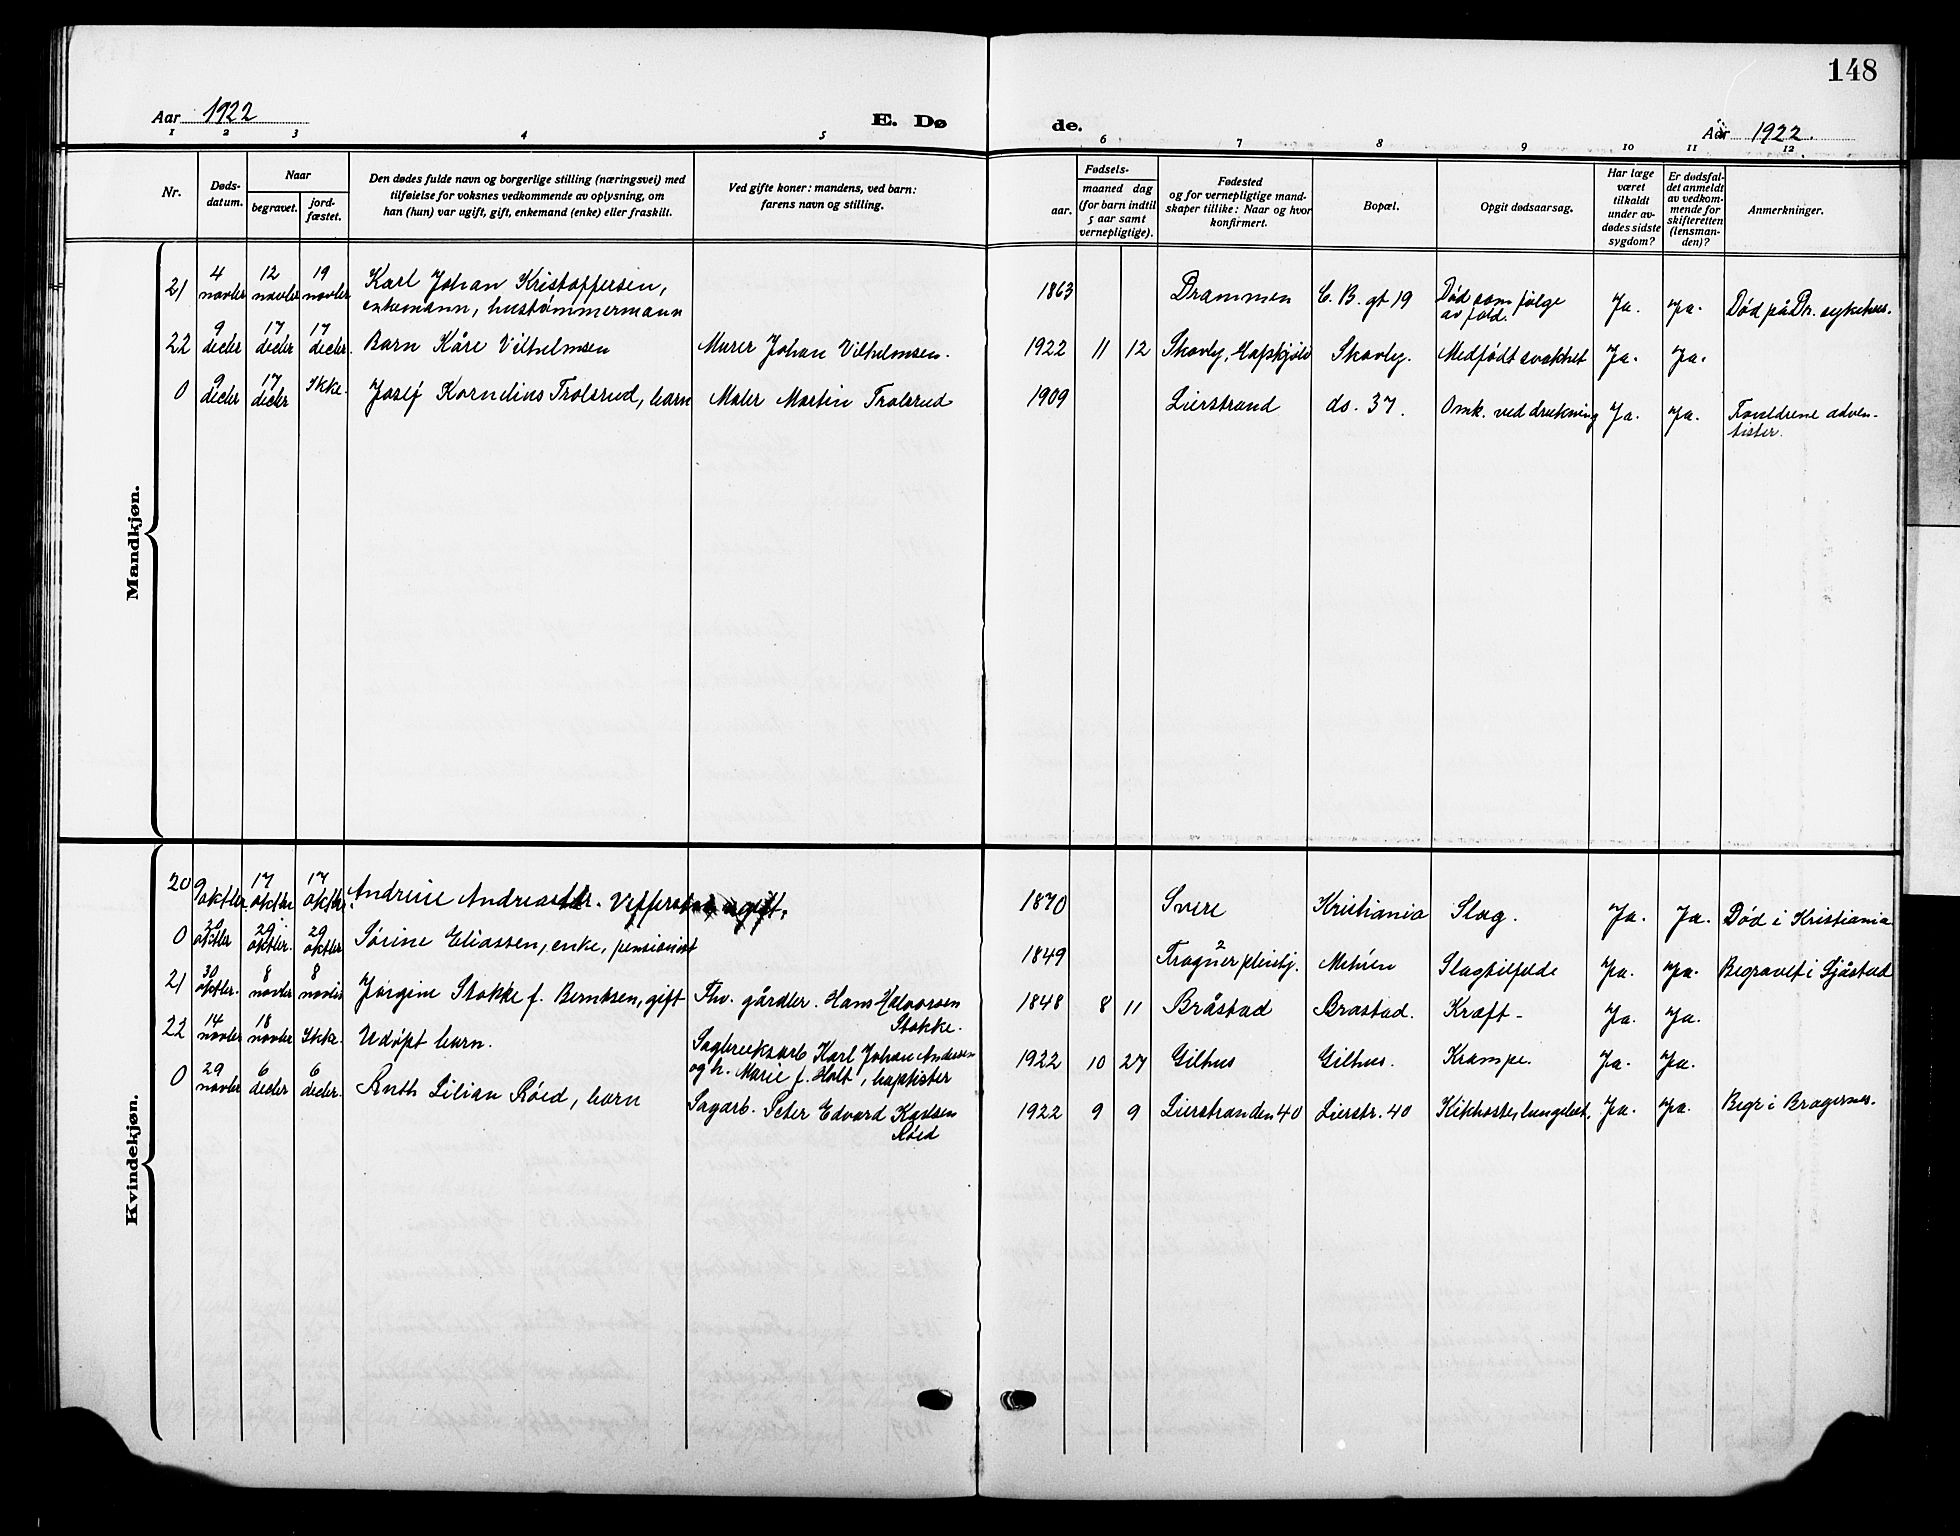 148
Aar 1922
E. Dø
de.
Aar 1922.
1 2 3 4 5 6 7 8 9 10 11 12
Nr.
Døds-
datum.
Naar
begravet.
jord-
fæstet.
Den dødes fulde navn og borgerlige stilling (næringsvei) med
tilføielse for voksnes vedkommende av oplysning, om
han (hun) var ugift, gift, enkemand (enke) eller fraskilt.
Ved gifte koner: mandens, ved barn:
farens navn og stilling.
Fødsels-
aar.
maaned dag
(for barn indtil
5 aar samt
vernepligtige).
Fødested
og for vernepligtige mand-
skaper tillike: Naar og hvor
konfirmert.
Bopæl.
Opgit dødsaarsag.
Har læge
været
tilkaldt
under av-
dødes sidste
sygdom?
Er dødsfal-
det anmeldt
av vedkom-
mende for
skifteretten
(lensman-
den)?
Anmerkninger.
Mandkjøn.
21 4 novber 12 novber 19 novber Karl Johan Kristoffersen,
enkemann, hustømmermann
1863 Drammen C. B. gt 19 Død som følge
av fald. Ja. Ja. Død på Dr. sykehus.
22 9 decbr 17 decbr 17 decbr. Barn Kåre Vilhelmsen Murer Johan Vilhelmsen. 1922 11 12 Skovly, Skovly. Medfødt svakhet Ja. Ja.
0 9 decbr 17 decbr Ikke. Josef Kornelius Trolsrud, barn Maler Martin Trolsrud 1909 Lierstrand ds. 37. Omk. ved drukning Ja. Ja. Forældrene adven-
tister.
Kvindekjøn.
20 9 oktber. 17 oktbr 17 oktbr. Andrine Andreasdtr. ugift. 1870 Svere Kristiania Slag. Ja. Ja. Død i Kristiania
0 20 oktber 29 oktber. 29 oktber Sørine Eliassen, enke, pensionist 1849 Mehren Slagtilfelde Ja. Ja. Begravet i Sjåstad
21 30 oktber. 8 novber 8 novber Jørgine Stokke f. Berntsen, gift Fhv. gårdbr. Hans Halvorsen
Stokke.
1848 8 11 Bråstad Brastad. Kræft - Ja. Ja.
22 14 novber 18 novber Ikke. Udøpt barn. Sagbruksarb Karl Johan Andersen
og h. Marie f. Holt, baptister
1922 10 27 Gilhus Gilhus. Krampe. Ja. Ja.
0 29 novbr 6 decbr 6 decbr. Ruth Lilian Røed, barn Sagarb. Peter Edvard Karlsen
Røed
1922 9 9 Lierstranden 40 Lierstr. 40 Kikhoste, lungebet. Ja. Ja. Begr i Bragernes.